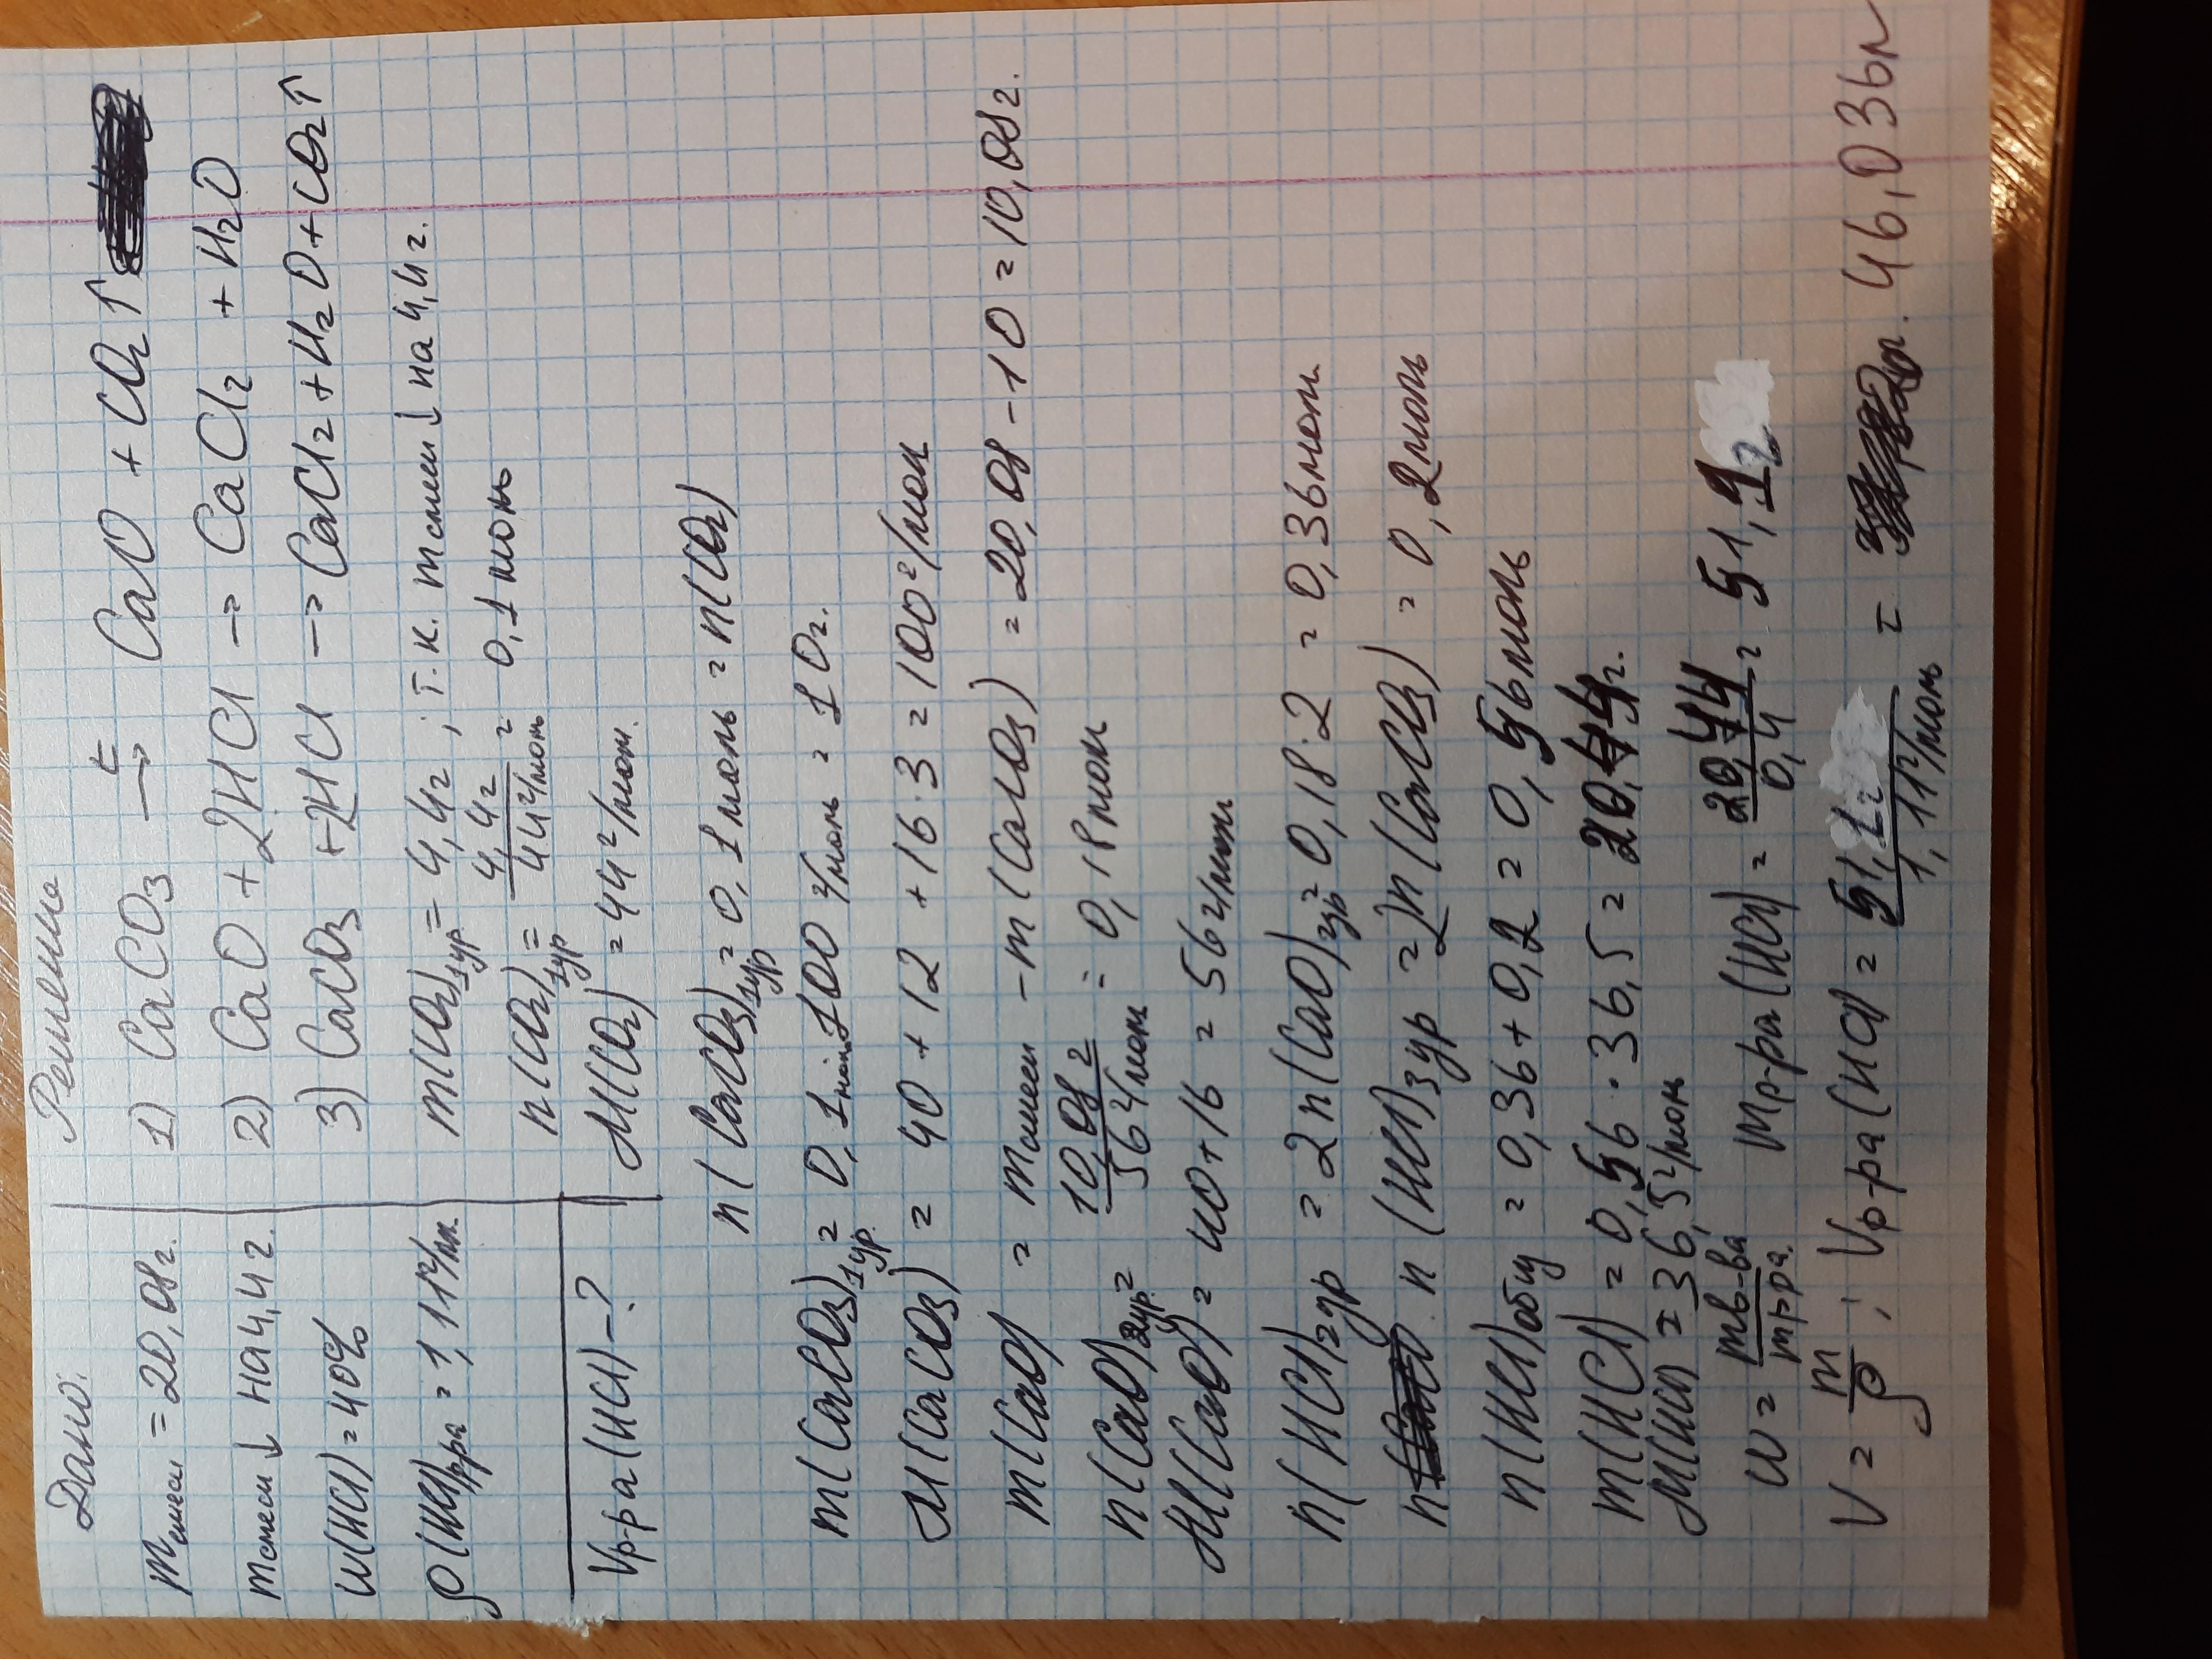 Дано:
mсмеси = 20,08г.
mсмеси ↓ на 4,4г.
w(HCl) = 40%
ρ(HCl)р-ра = 1,11г/мл.
Vр-ра(HCl) - ?
Решение
1) CaCO3 →t CaO + CO2↑
2) CaO + 2HCl → CaCl2 + H2O
3) CaCO3 + 2HCl → CaCl2 + H2O + CO2↑
m(CO2)1ур = 4,4г ; т.к. mсмеси↓ на 4,4г.
n(CO2)1ур = 4,4г / 44г/моль = 0,1моль
M(CO2) = 44г/моль.
n(CaCO3)1ур = 0,1моль = n(CO2)
m(CaCO3)1ур. = 0,1моль·100г/моль = 10г.
M(CaCO3) = 40 + 12 + 16·3 = 100г/моль
m(CaO) = mсмеси - m(CaCO3) = 20,08 - 10 = 10,08г.
n(CaO)2ур = 10,08г / 56г/моль = 0,18моль
M(CaO) = 40+16 = 56г/моль
n(HCl)2ур = 2n(CaO)2ур = 0,18·2 = 0,36моль
n(HCl)3ур = 2n(CaCO3) = 0,2моль
n(HCl)общ = 0,36+0,2 = 0,56моль
m(HCl) = 0,56·36,5 = 20,44г.
M(HCl) = 36,5г/моль
w = mв-ва / mр-ра. mр-ра(HCl) = 20,44 / 0,4 = 51,1г
V = m / ρ ; Vр-ра(HCl) = 51,1г / 1,11г/моль = 46,036л